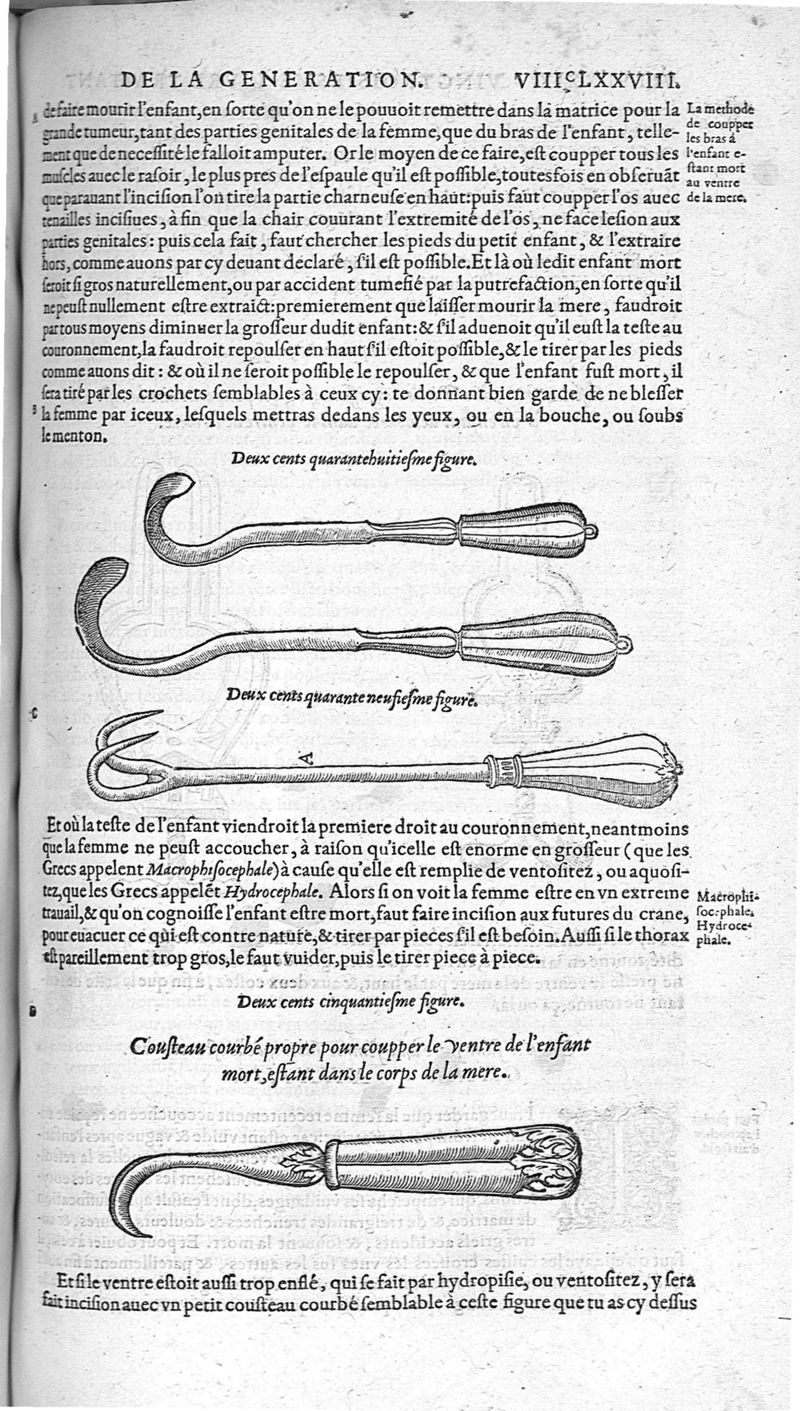 DE LA GENERATION. VIIIᶜLXXVIII.
de faire mourir l'enfant, en ſorte qu'on ne le pouuoit remettre dans la matrice pour la
grande tumeur, tant des parties genitales de la femme, que du bras de l'enfant, telle-
ment que de neceſſité le falloit amputer. Or le moyen de ce faire, eſt coupper tous les
muſcles auec le raſoir, le plus pres de l'eſpaule qu'il eſt poſſible, toutesfois en obſeruāt
que parauant l'inciſion l'on tire la partie charneuſe en haut: puis faut coupper l'os auec
tenailles inciſiues, à fin que la chair couurant l'extremité de l'os, ne face leſion aux
parties genitales: puis cela fait, faut chercher les pieds du petit enfant, & l'extraire
hors, comme auons par cy deuant declaré, ſ'il eſt poſſible. Et là où ledit enfant mort
ſeroit ſi gros naturellement, ou par accident tumefié par la putrefaction, en ſorte qu'il
ne peuſt nullement eſtre extraict: premierement que laiſſer mourir la mere, faudroit
par tous moyens diminuer la groſſeur dudit enfant: & ſ'il aduenoit qu'il euſt la teſte au
couronnement, la faudroit repoulſer en haut ſ'il eſtoit poſſible, & le tirer par les pieds
comme auons dit: & où il ne ſeroit poſſible le repoulſer, & que l'enfant fuſt mort, il
ſera tiré par les crochets ſemblables à ceux cy: te donnant bien garde de ne bleſſer
la femme par iceux, leſquels mettras dedans les yeux, ou en la bouche, ou ſoubs
le menton.
La methode
de coupper
les bras à
l'enfant e-
ſtant mort
au ventre
de la mere.
Deux cents quarantehuitieſme figure.
Deux cents quarante neufieſme figure.
C
A
Et où la teſte de l'enfant viendroit la premiere droit au couronnement, neantmoins
que la femme ne peuſt accoucher, à raiſon qu'icelle eſt enorme en groſſeur (que les
Grecs appelent Macrophiſocephale) à cauſe qu'elle eſt remplie de ventoſitez, ou aquoſi-
tez, que les Grecs appelēt Hydrocephale. Alors ſi on voit la femme eſtre en vn extreme
trauail, & qu'on cognoiſſe l'enfant eſtre mort, faut faire inciſion aux futures du crane,
pour euacuer ce qui eſt contre nature, & tirer par pieces ſ'il eſt beſoin. Auſſi ſi le thorax
eſt pareillement trop gros, le faut vuider, puis le tirer piece à piece.
Macrophi-
ſocephale.
Hydroce-
phale.
Deux cents cinquantieſme figure.
Couſteau courbé propre pour coupper le ventre de l'enfant
mort, eſtant dans le corps de la mere.
Et ſi le ventre eſtoit auſſi trop enflé, qui ſe fait par hydropiſie, ou ventoſitez, y ſera
fait inciſion auec vn petit couſteau courbé ſemblable à ceſte figure que tu as cy deſſus